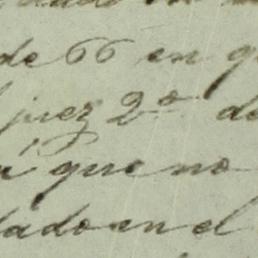 de 66 en q
juez 2º de
que no
dado en el